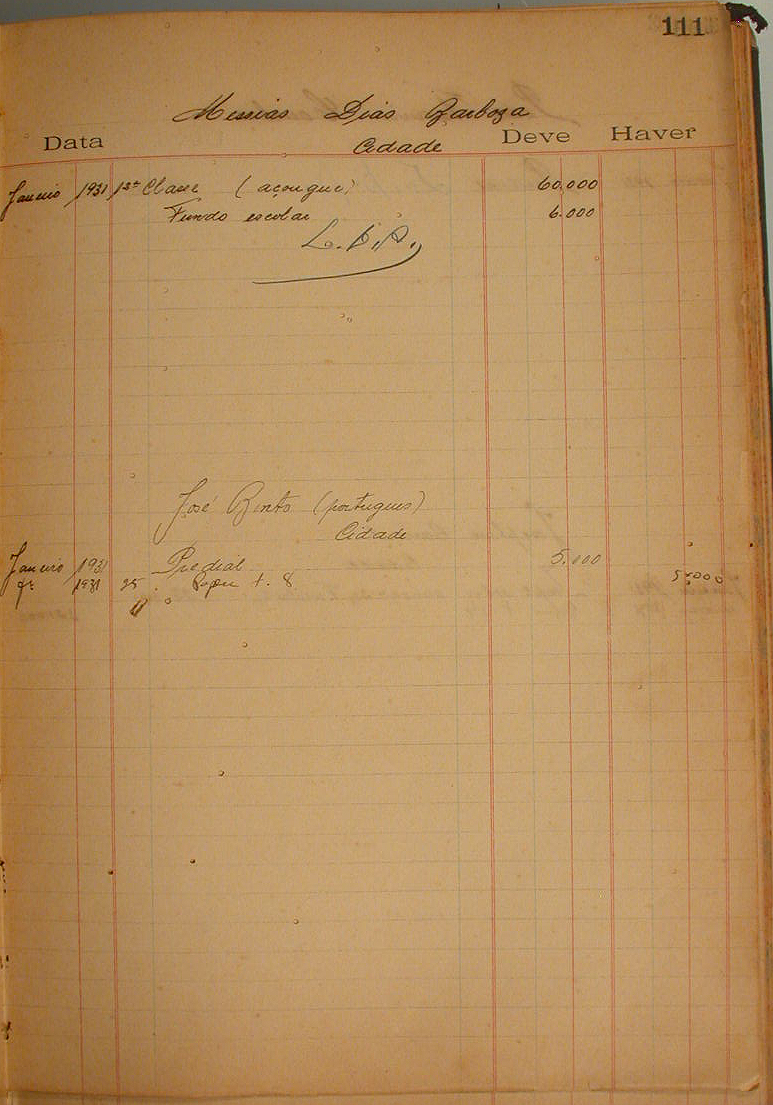 111
Messias Dias Barboza
Data Cidade Deve Haver
Janeiro 1931 1ª Classe (açougue) 60.000
Fundo escolar 6.000
L. D. A.
José Pinto (portugues)
Cidade
Janeiro 1931 Predial 5.000
1931 25 Pagou t. 8 5.000